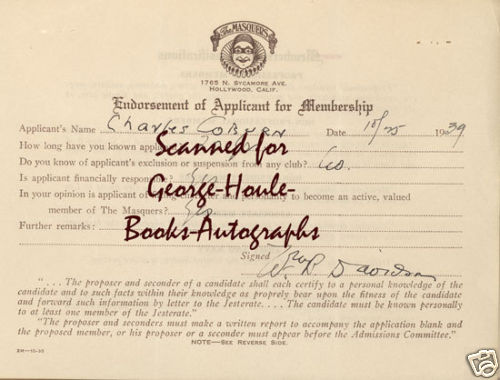 The MASQUERS
1765 N. Sycamore Ave.
Hollywood, Calif.
Endorsement of Applicant for Membership
Applicant's Name Charles Coburn Date 10/25 1939
How long have you known applicant
Do you know of applicant's exclusion or suspension from any club? No.
Is applicant financially responsible? Yes
In your opinion is applicant of and personality to become an active, valued
member of The Masquers? Yes
Further remarks:
Signed
W. B. Davidson
Scanned for
George-Houle-
Books-Autographs
". . . The proposer and seconder of a candidate shall each certify to a personal knowledge of the
candidate and to such facts within their knowledge as properly bear upon the fitness of the candidate
and forward such information by letter to the Jesterate. . . . The candidate must be known personally
to at least one member of the Jesterate."
"The proposer and seconders must make a written report to accompany the application blank and
the proposed member, or his proposer or a seconder must appear before the Admissions Committee."
NOTE—See Reverse Side.
ebY